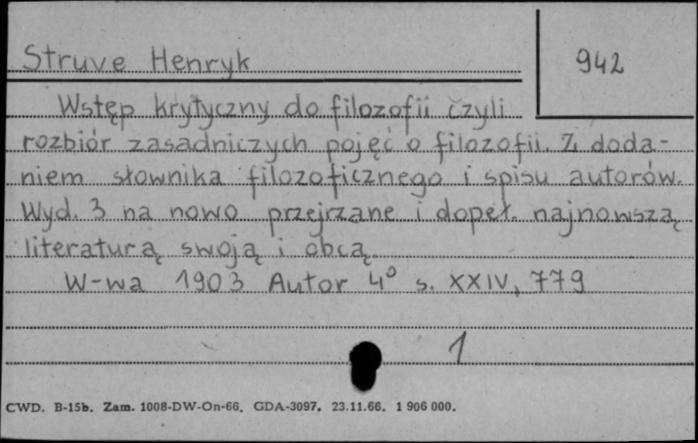 Struve Henryk
942
Wstęp krytyczny do filozofii czyli
rozbiór zasadniczych pojęć o filozofii. Z doda-
niem słownika filozoficznego i spisu autorów.
Wyd. 3 na nowo przejrzane i dopeł. najnowszą
literaturą swoją i obcą.
W-wa 1903 Autor 4° s. XXIV, 779
1
CWD. B-15b. Zam. 1008-DW-On-66. GDA-3097. 23.11.66. 1 906 000.